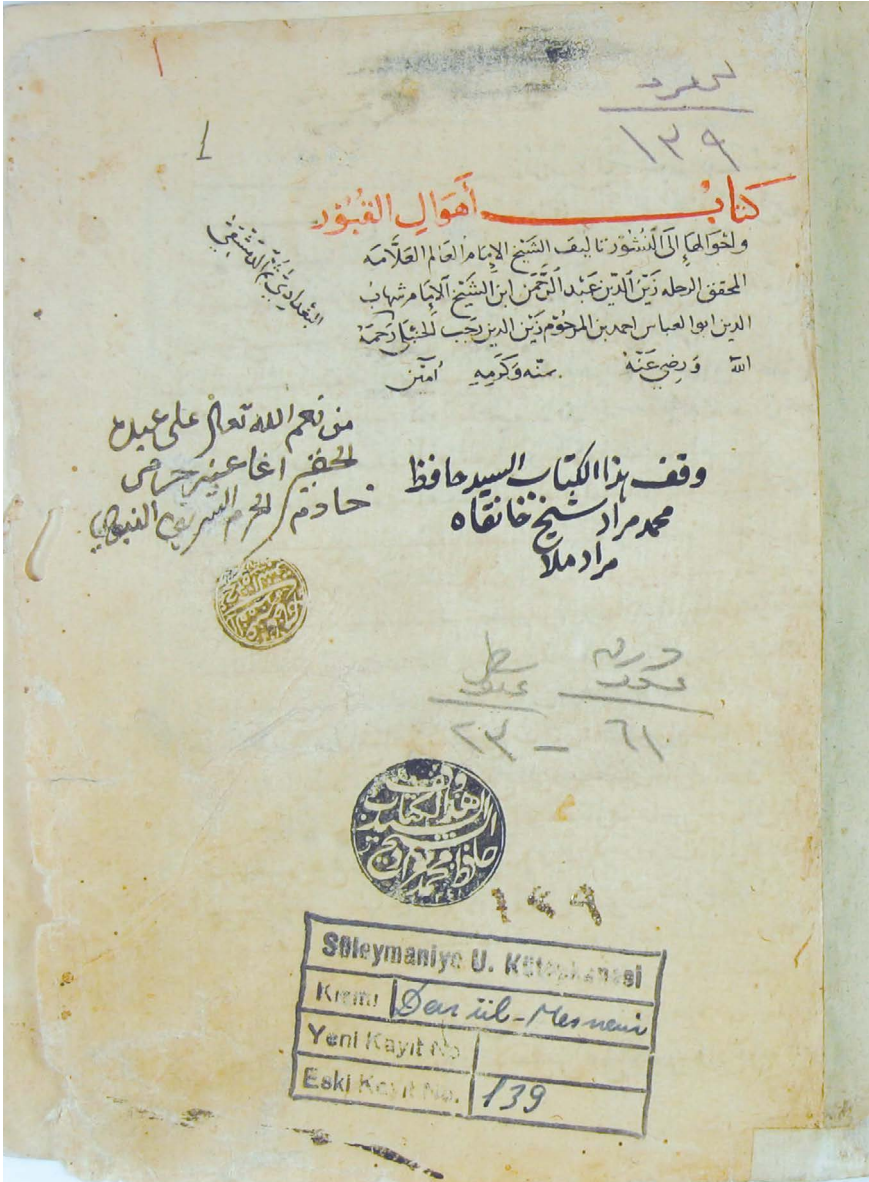 ١
نمرو
١٣٩
1
كتاب أهوال القبور
واحوالها إلى النشور تاليف الشيخ الإمام العالم العلامه
المحقق الرحله زين الدين عبد الرحمن ابن الشيخ الإمام شهاب
الدين ابو العباس احمد بن المرحوم زين الدين رجب الحنبلي رحمة
الله ورضي عنه بمنه وكرمه آمين
البغدادي ثم الدمشقي
من نعم الله تعالى على عبده
الحقير اغا عنبر
خادم الحرم الشريف النبوي
وقف هذا الكتاب السيد حافظ
محمد مراد شيخ خانقاه
مراد ملا
ورق سطر
عدد عدد
٦١ – ٢٣
وقف
هذا الكتاب
السيد الشيخ
حافظ محمد مراد
١٣٩
Süleymaniye U. Kütüphanesi
Kısmı Dar ül-Mesnevi
Yeni Kayıt No
Eski Kayıt No. 139